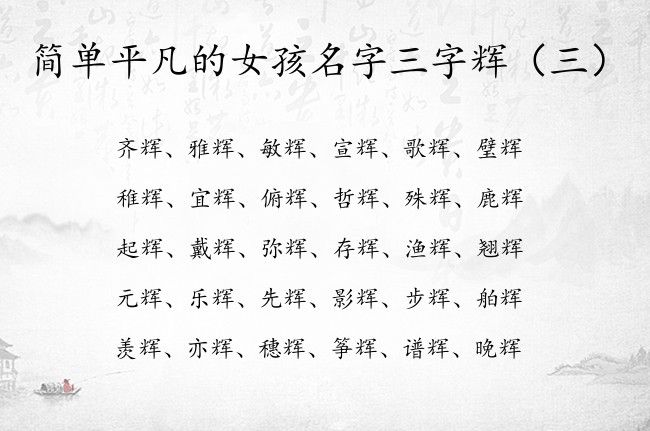 简单平凡的女孩名字三字辉（三）
齐辉、雅辉、敏辉、宣辉、歌辉、璧辉
稚辉、宜辉、俯辉、哲辉、殊辉、鹿辉
起辉、戴辉、弥辉、存辉、渔辉、翘辉
元辉、乐辉、先辉、影辉、步辉、舶辉
羡辉、亦辉、穗辉、筝辉、谱辉、晚辉